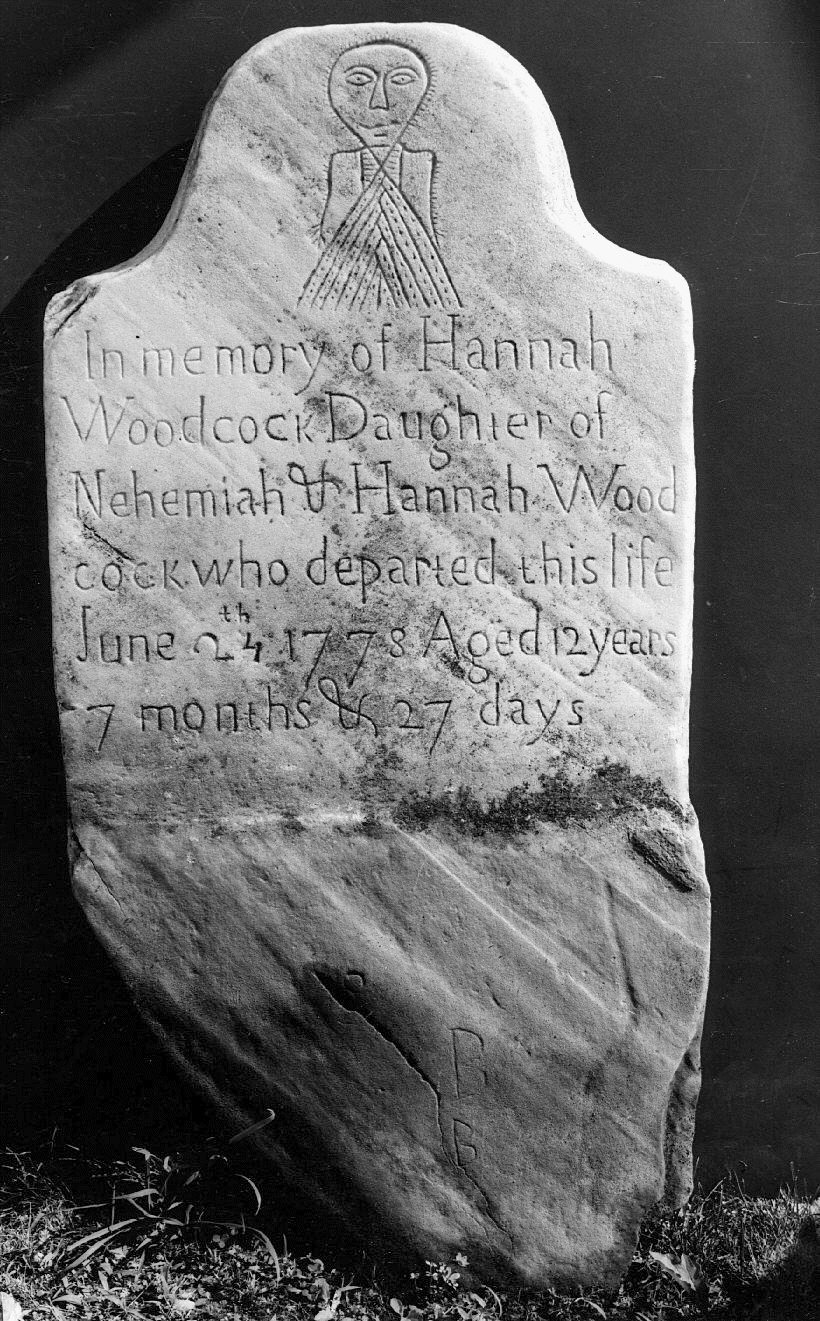 In memory of Hannah
Woodcock Daughter of
Nehemiah & Hannah Wood
cock who departed this life
June 24th 1778 Aged 12 years
7 months & 27 days
B
B